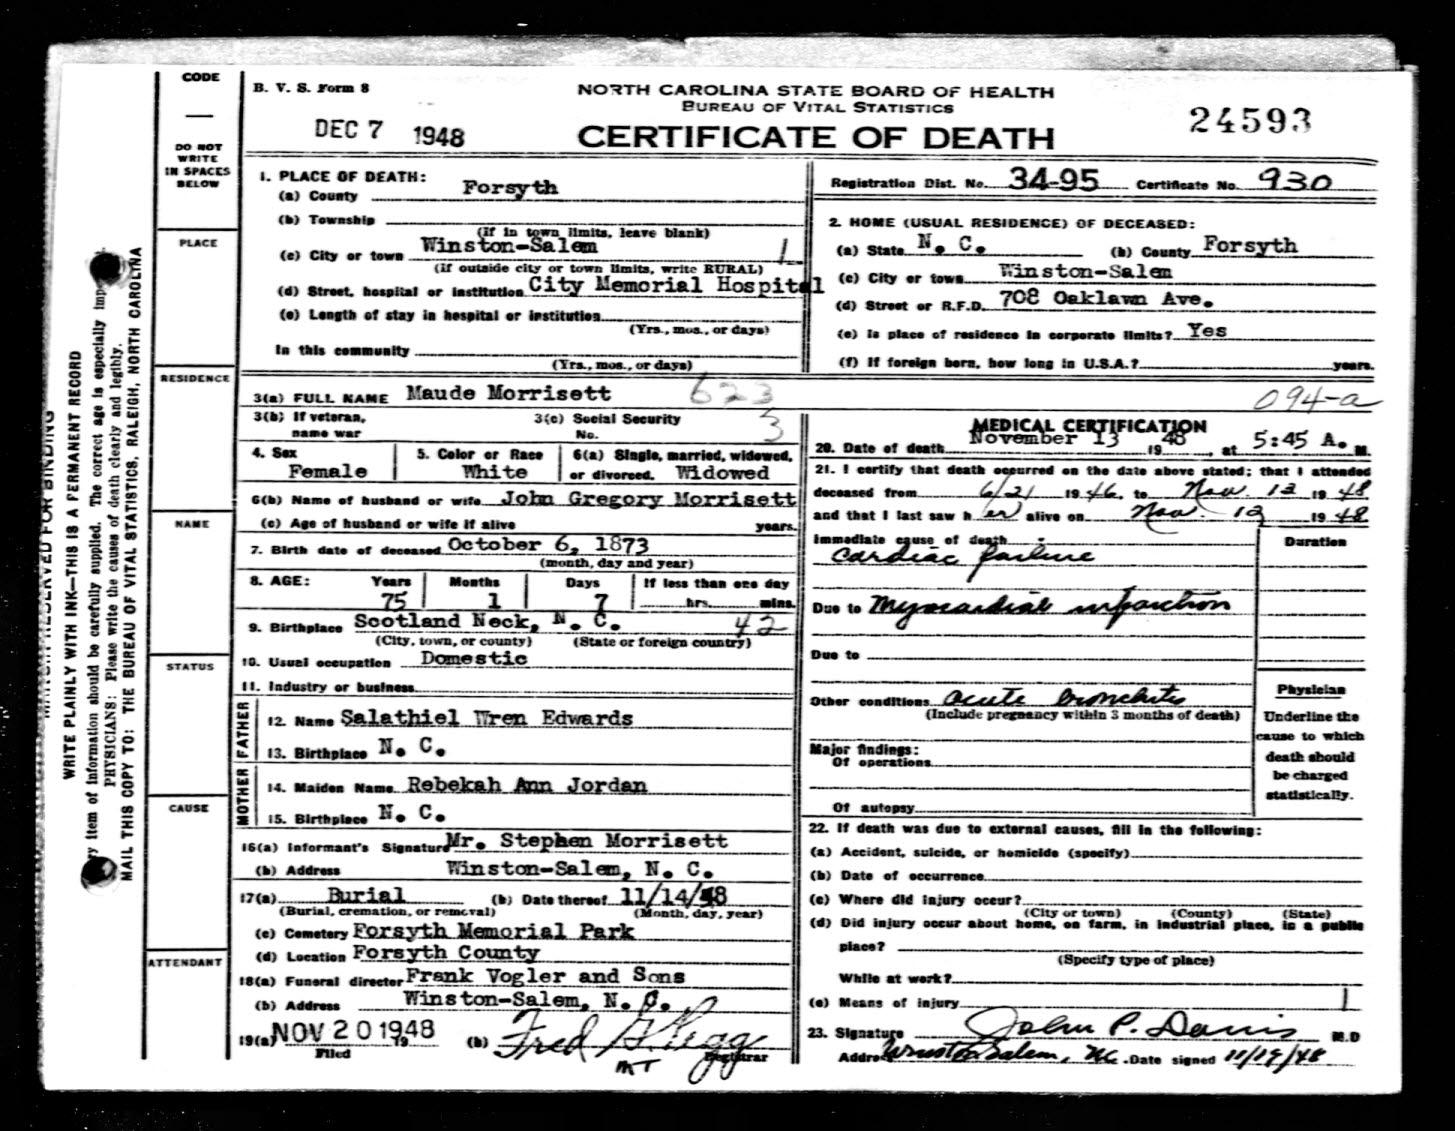 CODE
—
DO NOT
WRITE
IN SPACES
BELOW
PLACE
RESIDENCE
NAME
STATUS
CAUSE
ATTENDANT
RESERVED FOR BINDING
WRITE PLAINLY WITH INK—THIS IS A PERMANENT RECORD
item of information should be carefully supplied. The correct age is especially
PHYSICIANS: Please write the causes of death clearly and legibly.
MAIL THIS COPY TO: THE BUREAU OF VITAL STATISTICS, RALEIGH, NORTH CAROLINA
B. V. S. Form 8
NORTH CAROLINA STATE BOARD OF HEALTH
BUREAU OF VITAL STATISTICS
DEC 7 1948
CERTIFICATE OF DEATH
24593
1. PLACE OF DEATH:
(a) County Forsyth
(b) Township
(If in town limits, leave blank)
(c) City or town Winston-Salem 1
(If outside city or town limits, write RURAL)
(d) Street, hospital or institution City Memorial Hospital
(e) Length of stay in hospital or institution
(Yrs., mos., or days)
In this community
(Yrs., mos., or days)
Registration Dist. No. 34-95 Certificate No. 930
2. HOME (USUAL RESIDENCE) OF DECEASED:
(a) State N. C. (b) County Forsyth
(c) City or town Winston-Salem
(d) Street or R.F.D. 708 Oaklawn Ave.
(e) Is place of residence in corporate limits? Yes
(f) If foreign born, how long in U.S.A.? years.
3(a) FULL NAME Maude Morrisett 623
094-a
3(b) If veteran, 3(c) Social Security 3
name war No.
4. Sex 5. Color or Race 6(a) Single, married, widowed,
Female White or divorced. Widowed
6(b) Name of husband or wife John Gregory Morrisett
(c) Age of husband or wife if alive years.
7. Birth date of deceased October 6, 1873
(month, day and year)
8. AGE: Years Months Days If less than one day
75 1 7 hrs. mins.
9. Birthplace Scotland Neck, N. C. 42
(City, town, or county) (State or foreign country)
10. Usual occupation Domestic
11. Industry or business
FATHER
12. Name Salathiel Wren Edwards
13. Birthplace N. C.
MOTHER
14. Maiden Name Rebekah Ann Jordan
15. Birthplace N. C.
16(a) Informant's Signature Mr. Stephen Morrisett
(b) Address Winston-Salem, N. C.
17(a) Burial (b) Date thereof 11/14/48
(Burial, cremation, or removal) (Month, day, year)
(c) Cemetery Forsyth Memorial Park
(d) Location Forsyth County
18(a) Funeral director Frank Vogler and Sons
(b) Address Winston-Salem, N. C.
19(a) NOV 20 1948 19 (b) Fred G Pegg
Filed Registrar
MT
MEDICAL CERTIFICATION
20. Date of death November 13 1948, at 5:45 A. M.
21. I certify that death occurred on the date above stated; that I attended
deceased from 6/21 1946, to Nov. 13 1948
and that I last saw her alive on Nov. 12 1948
Immediate cause of death Duration
Cardiac failure
Due to Myocardial infarction
Due to
Other conditions acute bronchitis
(Include pregnancy within 3 months of death)
Major findings:
Of operations
Of autopsy
Physician
Underline the
cause to which
death should
be charged
statistically.
22. If death was due to external causes, fill in the following:
(a) Accident, suicide, or homicide (specify)
(b) Date of occurrence
(c) Where did injury occur?
(City or town) (County) (State)
(d) Did injury occur about home, on farm, in industrial place, in a public
place?
(Specify type of place)
While at work?
(e) Means of injury 1
23. Signature John P. Davis M.D
Address Winston Salem, NC. Date signed 11/19/48